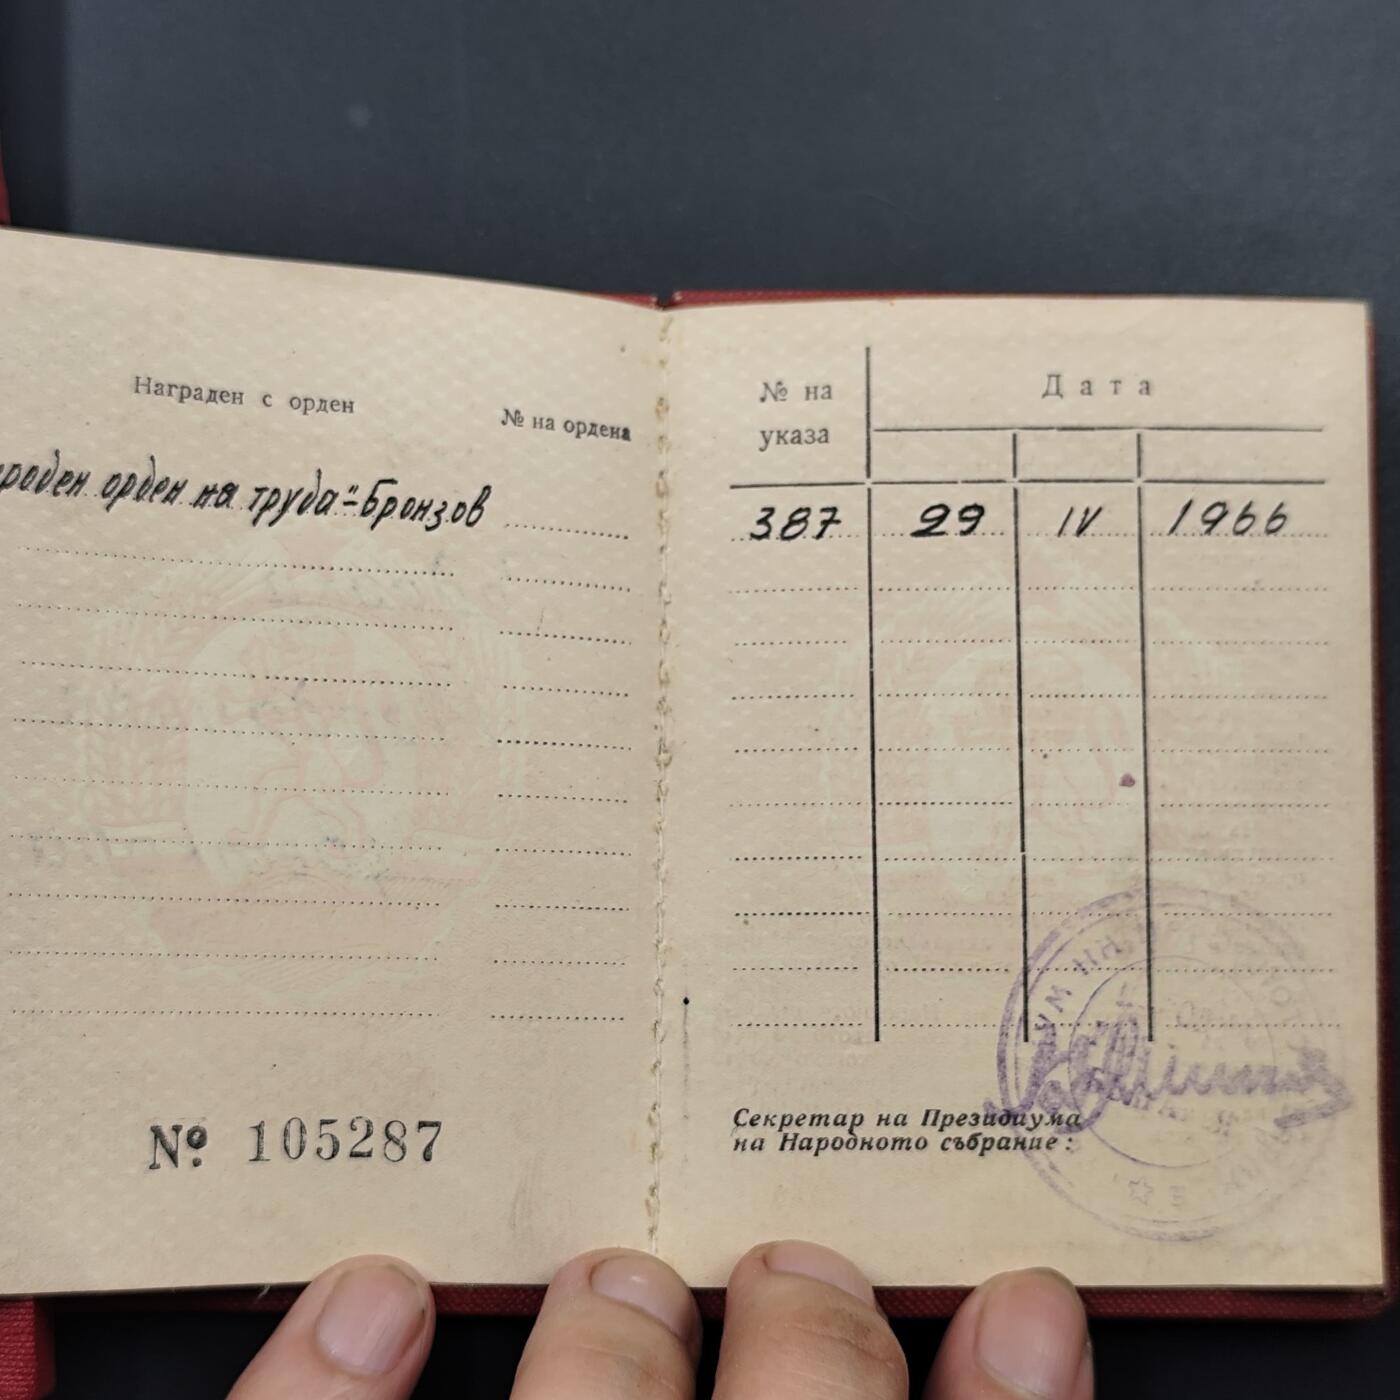 Награден с орден
№ на ордена
роден орден на труда"-бронзов
№ 105287
№ на
указа
Дата
387 29 IV 1966
Секретар на Президиума
на Народното събрание: